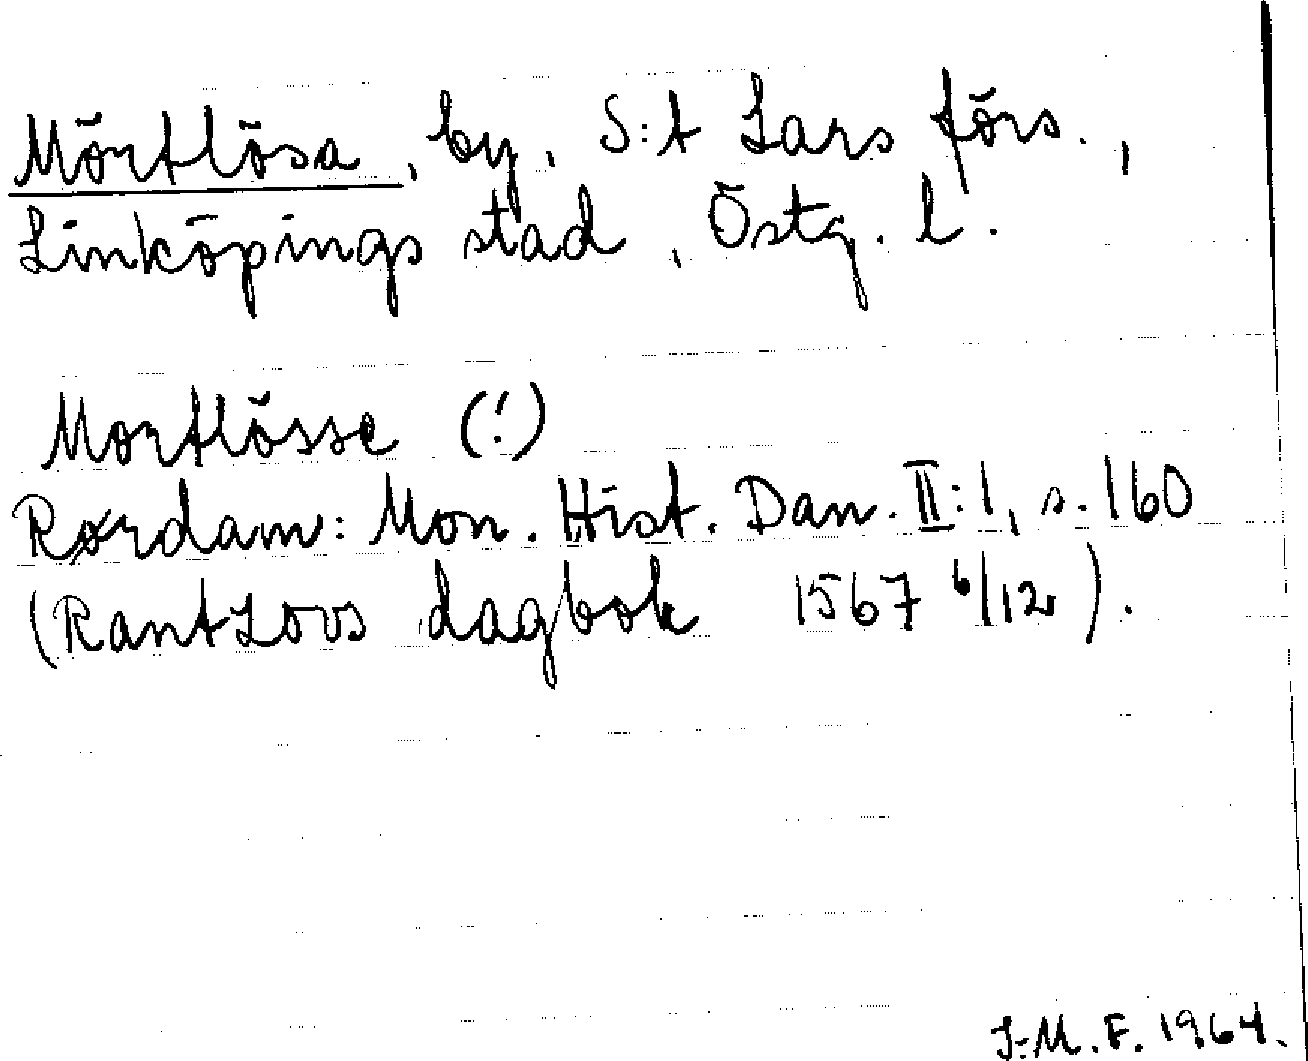 Mörtlösa, by, S:t Lars förs.,
Linköpings stad, Östg. l.
Mortlösse (!)
Rørdam: Mon. Hist. Dan. II:1, s. 160
(Rantzovs dagbok 1567 6/12).
J-M. F. 1964.